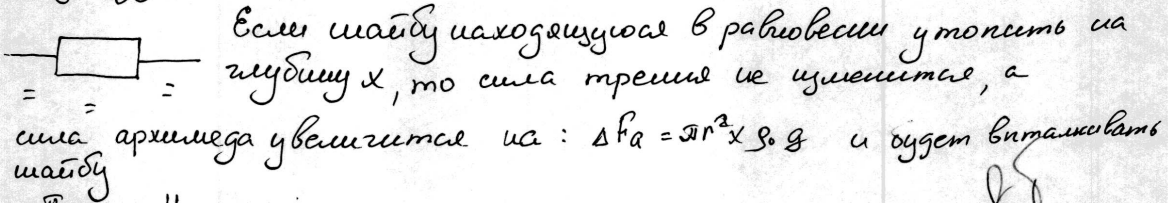 Если шайбу находящуюся в равновесии утопить на
глубину x, то сила трения не изменится, а
сила архимеда увеличится на: ΔFa = πr²xρ₀g и будет выталкивать
шайбу